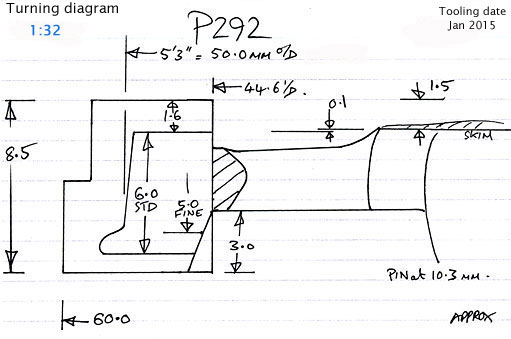 Turning diagram
1:32
P292
Tooling date
Jan 2015
5'3" = 50.0 MM O/D
44.6 I/D.
1.5
0.1
1.6
8.5
SKIM
6.0
STD
5.0
FINE
3.0
PIN at 10.3 MM.
60.0
APPROX